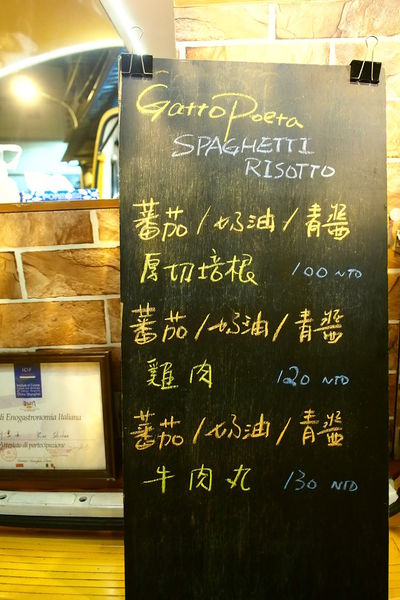 Gatto Poeta
SPAGHETTI
RISOTTO
蕃茄/奶油/青醬
厚切培根 100 NTD
蕃茄/奶油/青醬
雞肉 120 NTD
蕃茄/奶油/青醬
牛肉丸 130 NTD
ICIF
di Enogastronomia Italiana
Attestato di partecipazione